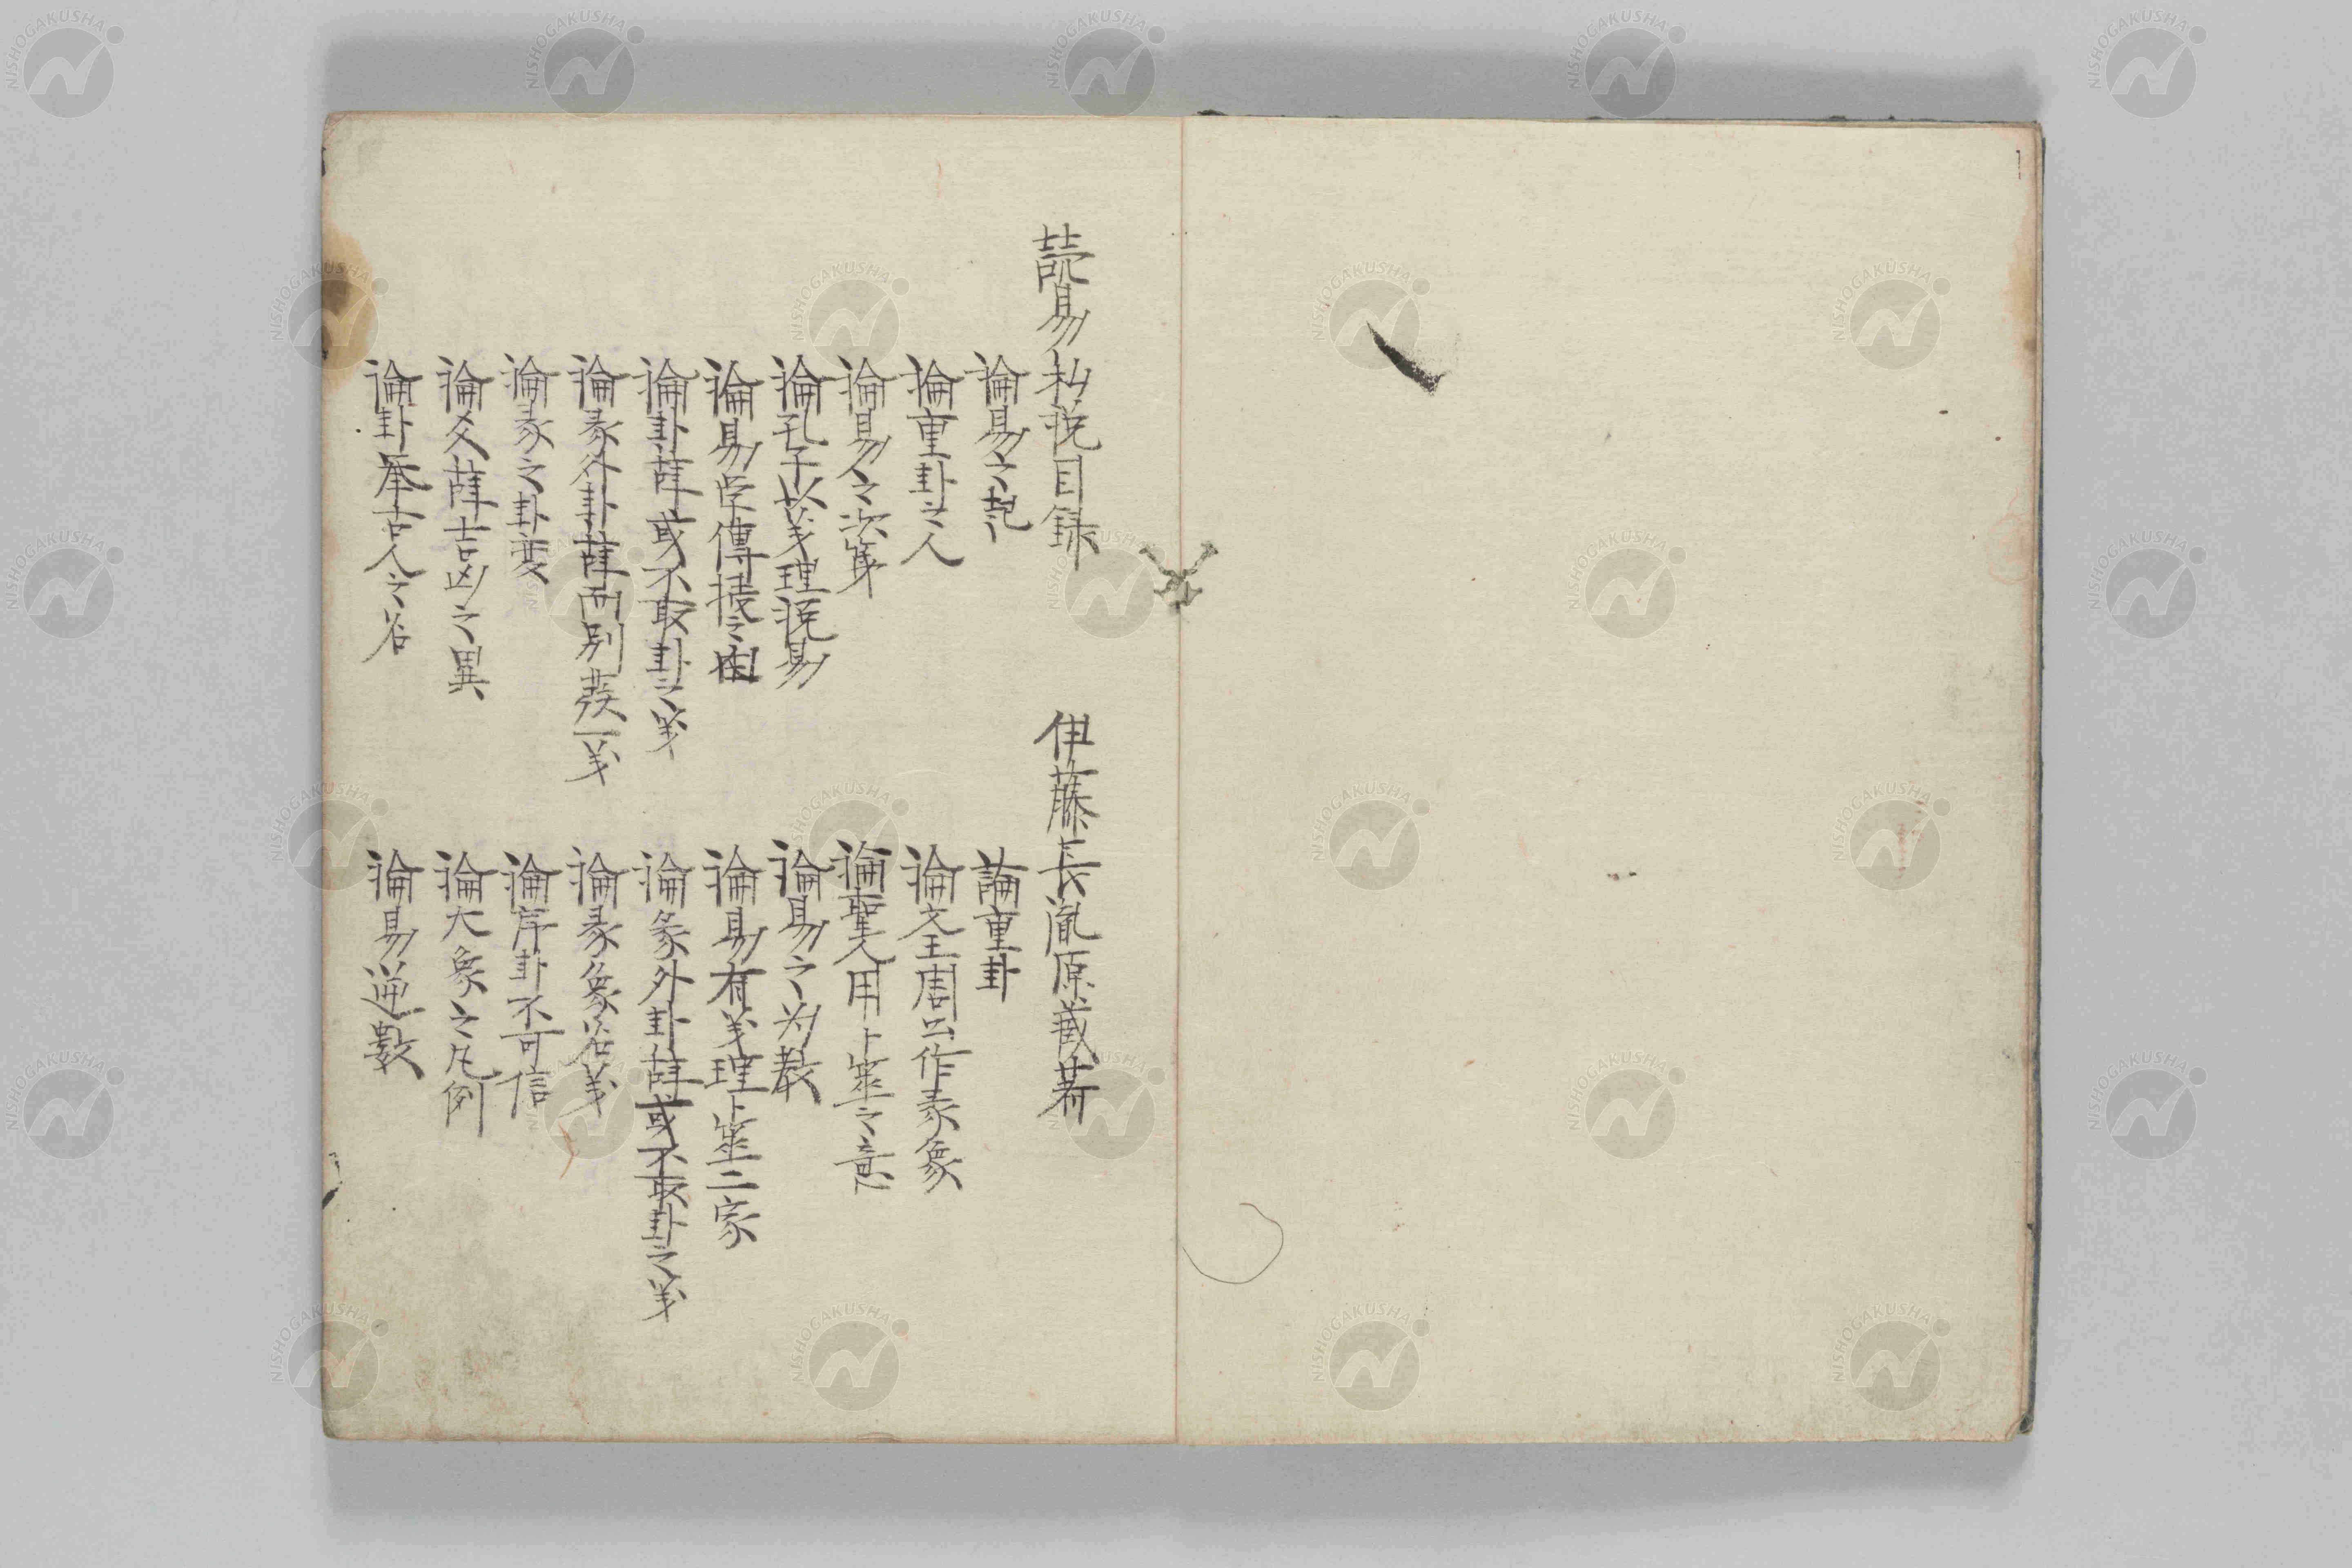 読易私説目録　伊藤長胤原蔵著
論易之起　論重卦
論重卦之人　論文王周公作彖象
論易之次第　論聖人用卜筮之意
論孔子以義理説易　論易之为教
論易学傳授之由　論易有義理卜筮二家
論卦辞或不取卦之義　論象外卦辞或不取卦之義
論彖外卦辞而别發一義　論彖象名義
論彖之卦変　論序卦不可信
論爻辞吉凶之異　論大象之凡例
論卦挙古人之名　論易逆數